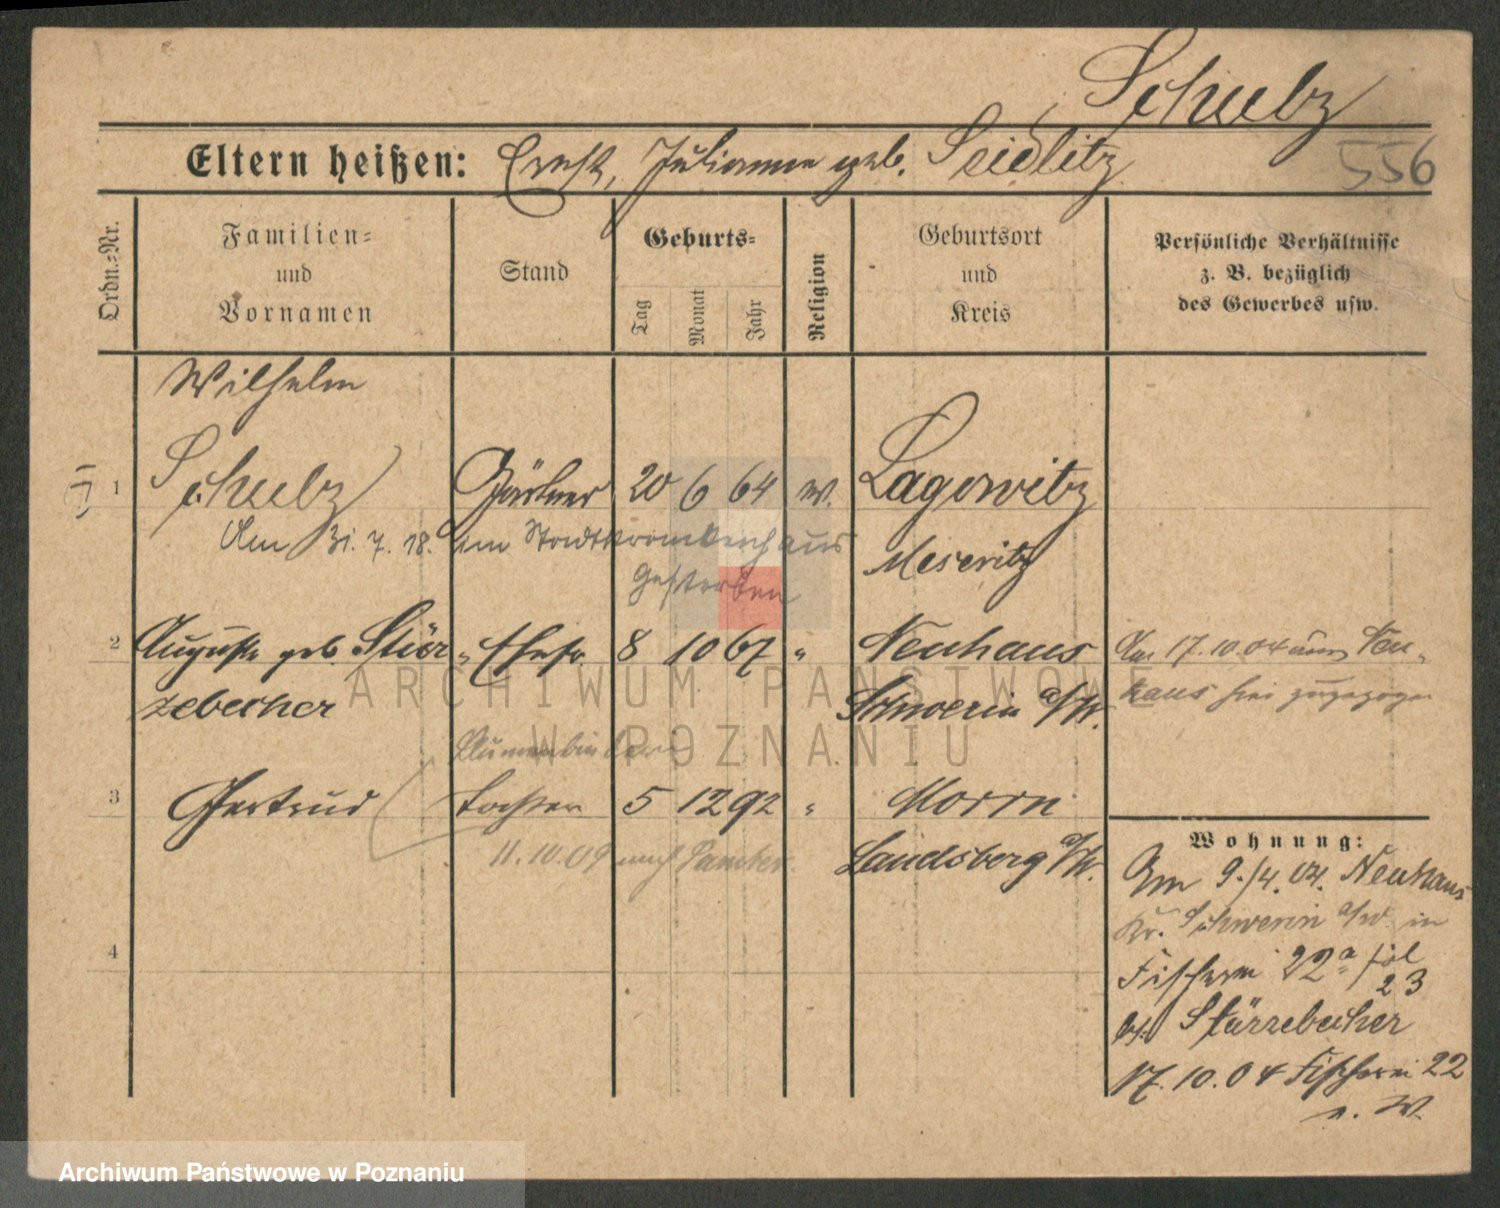 Schulz
Eltern heißen: Ernst, Julianne geb. Seidlitz
556
Ordn.-Nr.
Familien-
und
Vornamen
Stand
Geburts-
Tag
Monat
Jahr
Religion
Geburtsort
und
Kreis
Persönliche Verhältnisse
z. B. bezüglich
des Gewerbes usw.
Wilhelm
1 Schulz Gärtner 20 6 64 ev. Lagowitz
Am 31.7.18. im Stadtkrankenhaus
gestorben
Meseritz
2 Auguste geb. Stür- Ehefr. 8 10 67 " Neuhaus
zebecher
Schwerin a/W.
17.10.04 aus Neu-
haus hier zugezogen
Blumenbinderin
3 Gertrud Tochter 5 12 92 " Morrn
11.10.09 nach
Landsberg a/W.
4
Wohnung:
Am 9./4.04. Neuhaus
Kr. Schwerin a/W. in
Fischerei 22a
23
bei Stürzebecher
17.10.04 Fischerei 22
ARCHIWUM PAŃSTWOWE
W POZNANIU
Archiwum Państwowe w Poznaniu